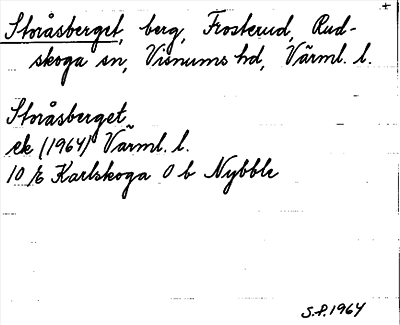 Storåsberget, berg, Frosterud, Rud-
skoga sn, Visnums hd, Värml. l.
Storåsberget
ek (1964) Värml. l.
10/E Karlskoga O b Nybble
S.P. 1964